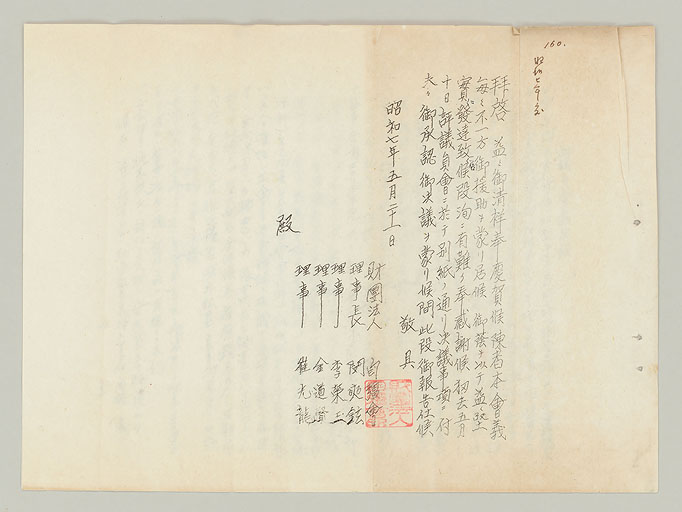 160.
昭和七年度
拝啓 益々御清祥奉慶賀候陳者本會義
毎々不一方御援助ヲ蒙リ居候 御蔭ヲ以テ益堅
實發達致候段洵ニ有難ク奉感謝候 初去五月
十日評議員會ニ於テ別紙ノ通リ決議事項ニ付
夫々御承認御決議ヲ蒙リ候間此段御報告仕候
敬具
昭和七年五月二十一日
財團法人
理事長 閔
理事 李榮
理事 金道
理事 崔允龍
殿